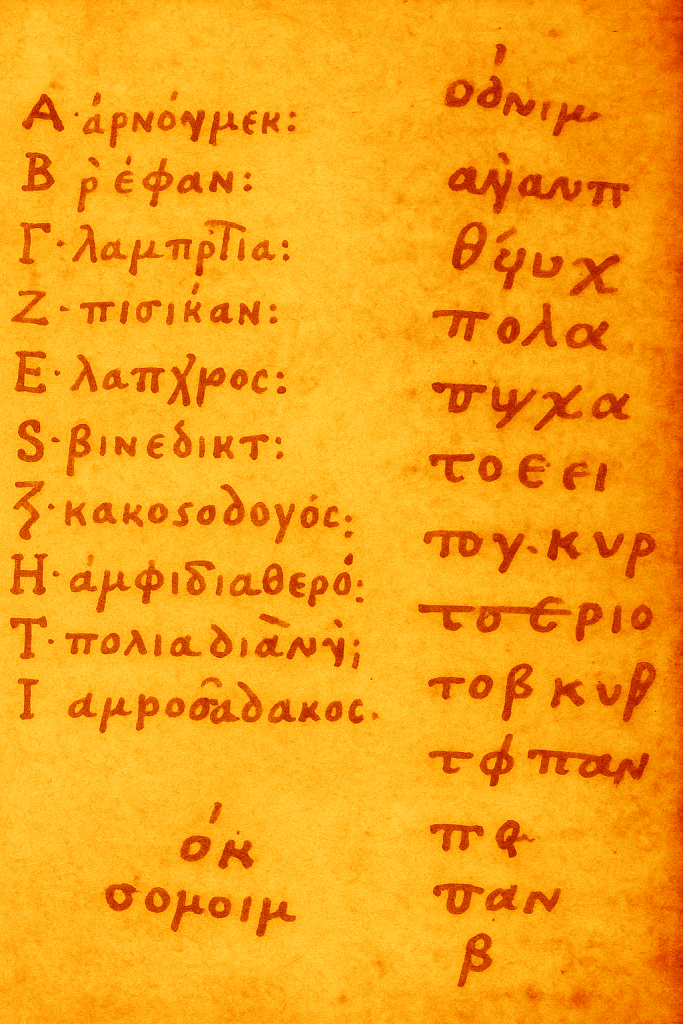 Α· άρνόυμεκ:
Β ρ̀ έφαν:
Γ· λαμπρτια:
Ζ· πισικαν:
Ε· λαπχρος:
Ѕ· βινεδικτ:
κακοςοδογός:
Η· άμφιδιαθερό:
Τ· πολιαδιὰνὴ;
Ι αμροσαδακος.
όκ
σομοιμ
όδνιμ
αὴαυπ
θύψυχ
πολα
πψχα
τοεει
τογ· κυρ
τοεριο
τοβ κυβ
τφ παν
παν
β